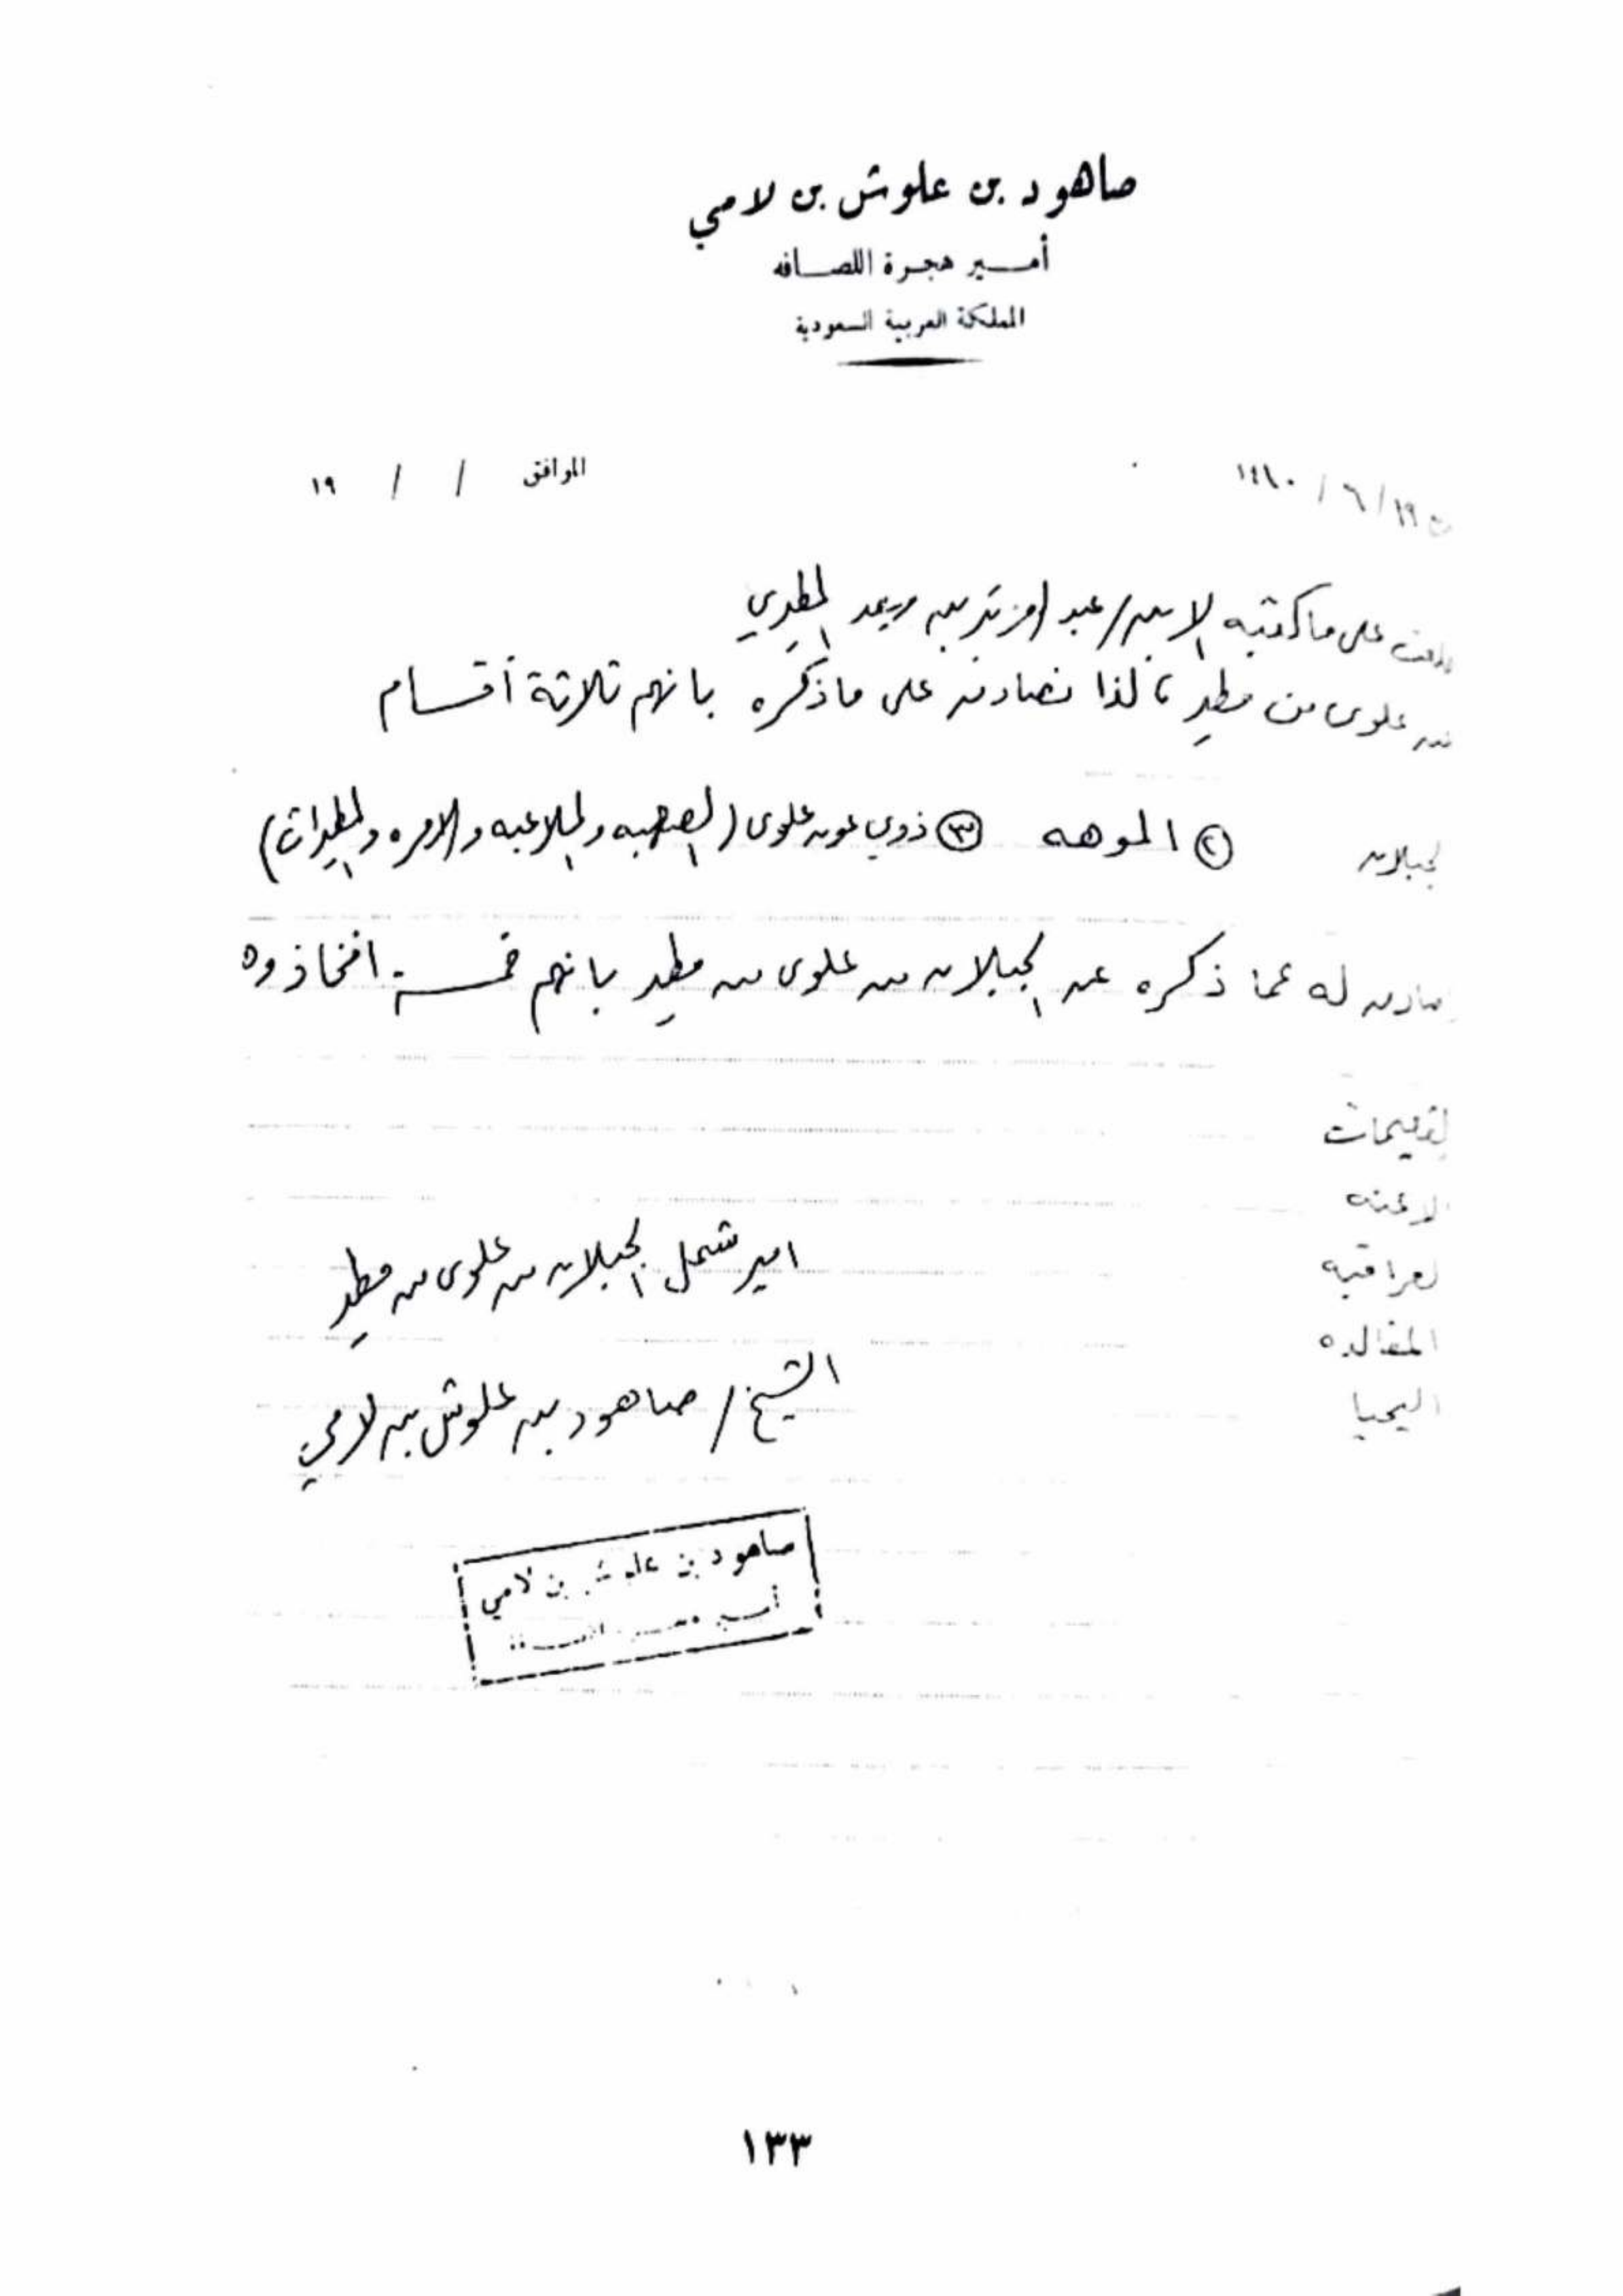 صاهود بن علوش بن لامي
أمير هجرة اللصافه
المملكة العربية السعودية
١٩ / ٦ / ١٤١٠
الموافق / / ١٩
على ما كتبه الابن / عبد العزيز بن المطيري
علوى من مطير ، لذا نصادق على ماذكره بانهم ثلاثة أقسام
لجبلان ② الموهه ③ ذوي عون علوى (الصهبه والملاعبه و والمطيرات)
له عما ذكره عن الجبلان من علوى من مطير بانهم خمسة افخاذ وه
لقعيمات
الاعنه
لعراقبه
المقالده
اليحيا
امير شمل الجبلان من علوى من مطير
الشيخ / صاهود بن علوش بن لامي
صاهود بن علوش بن لامي
١٣٣